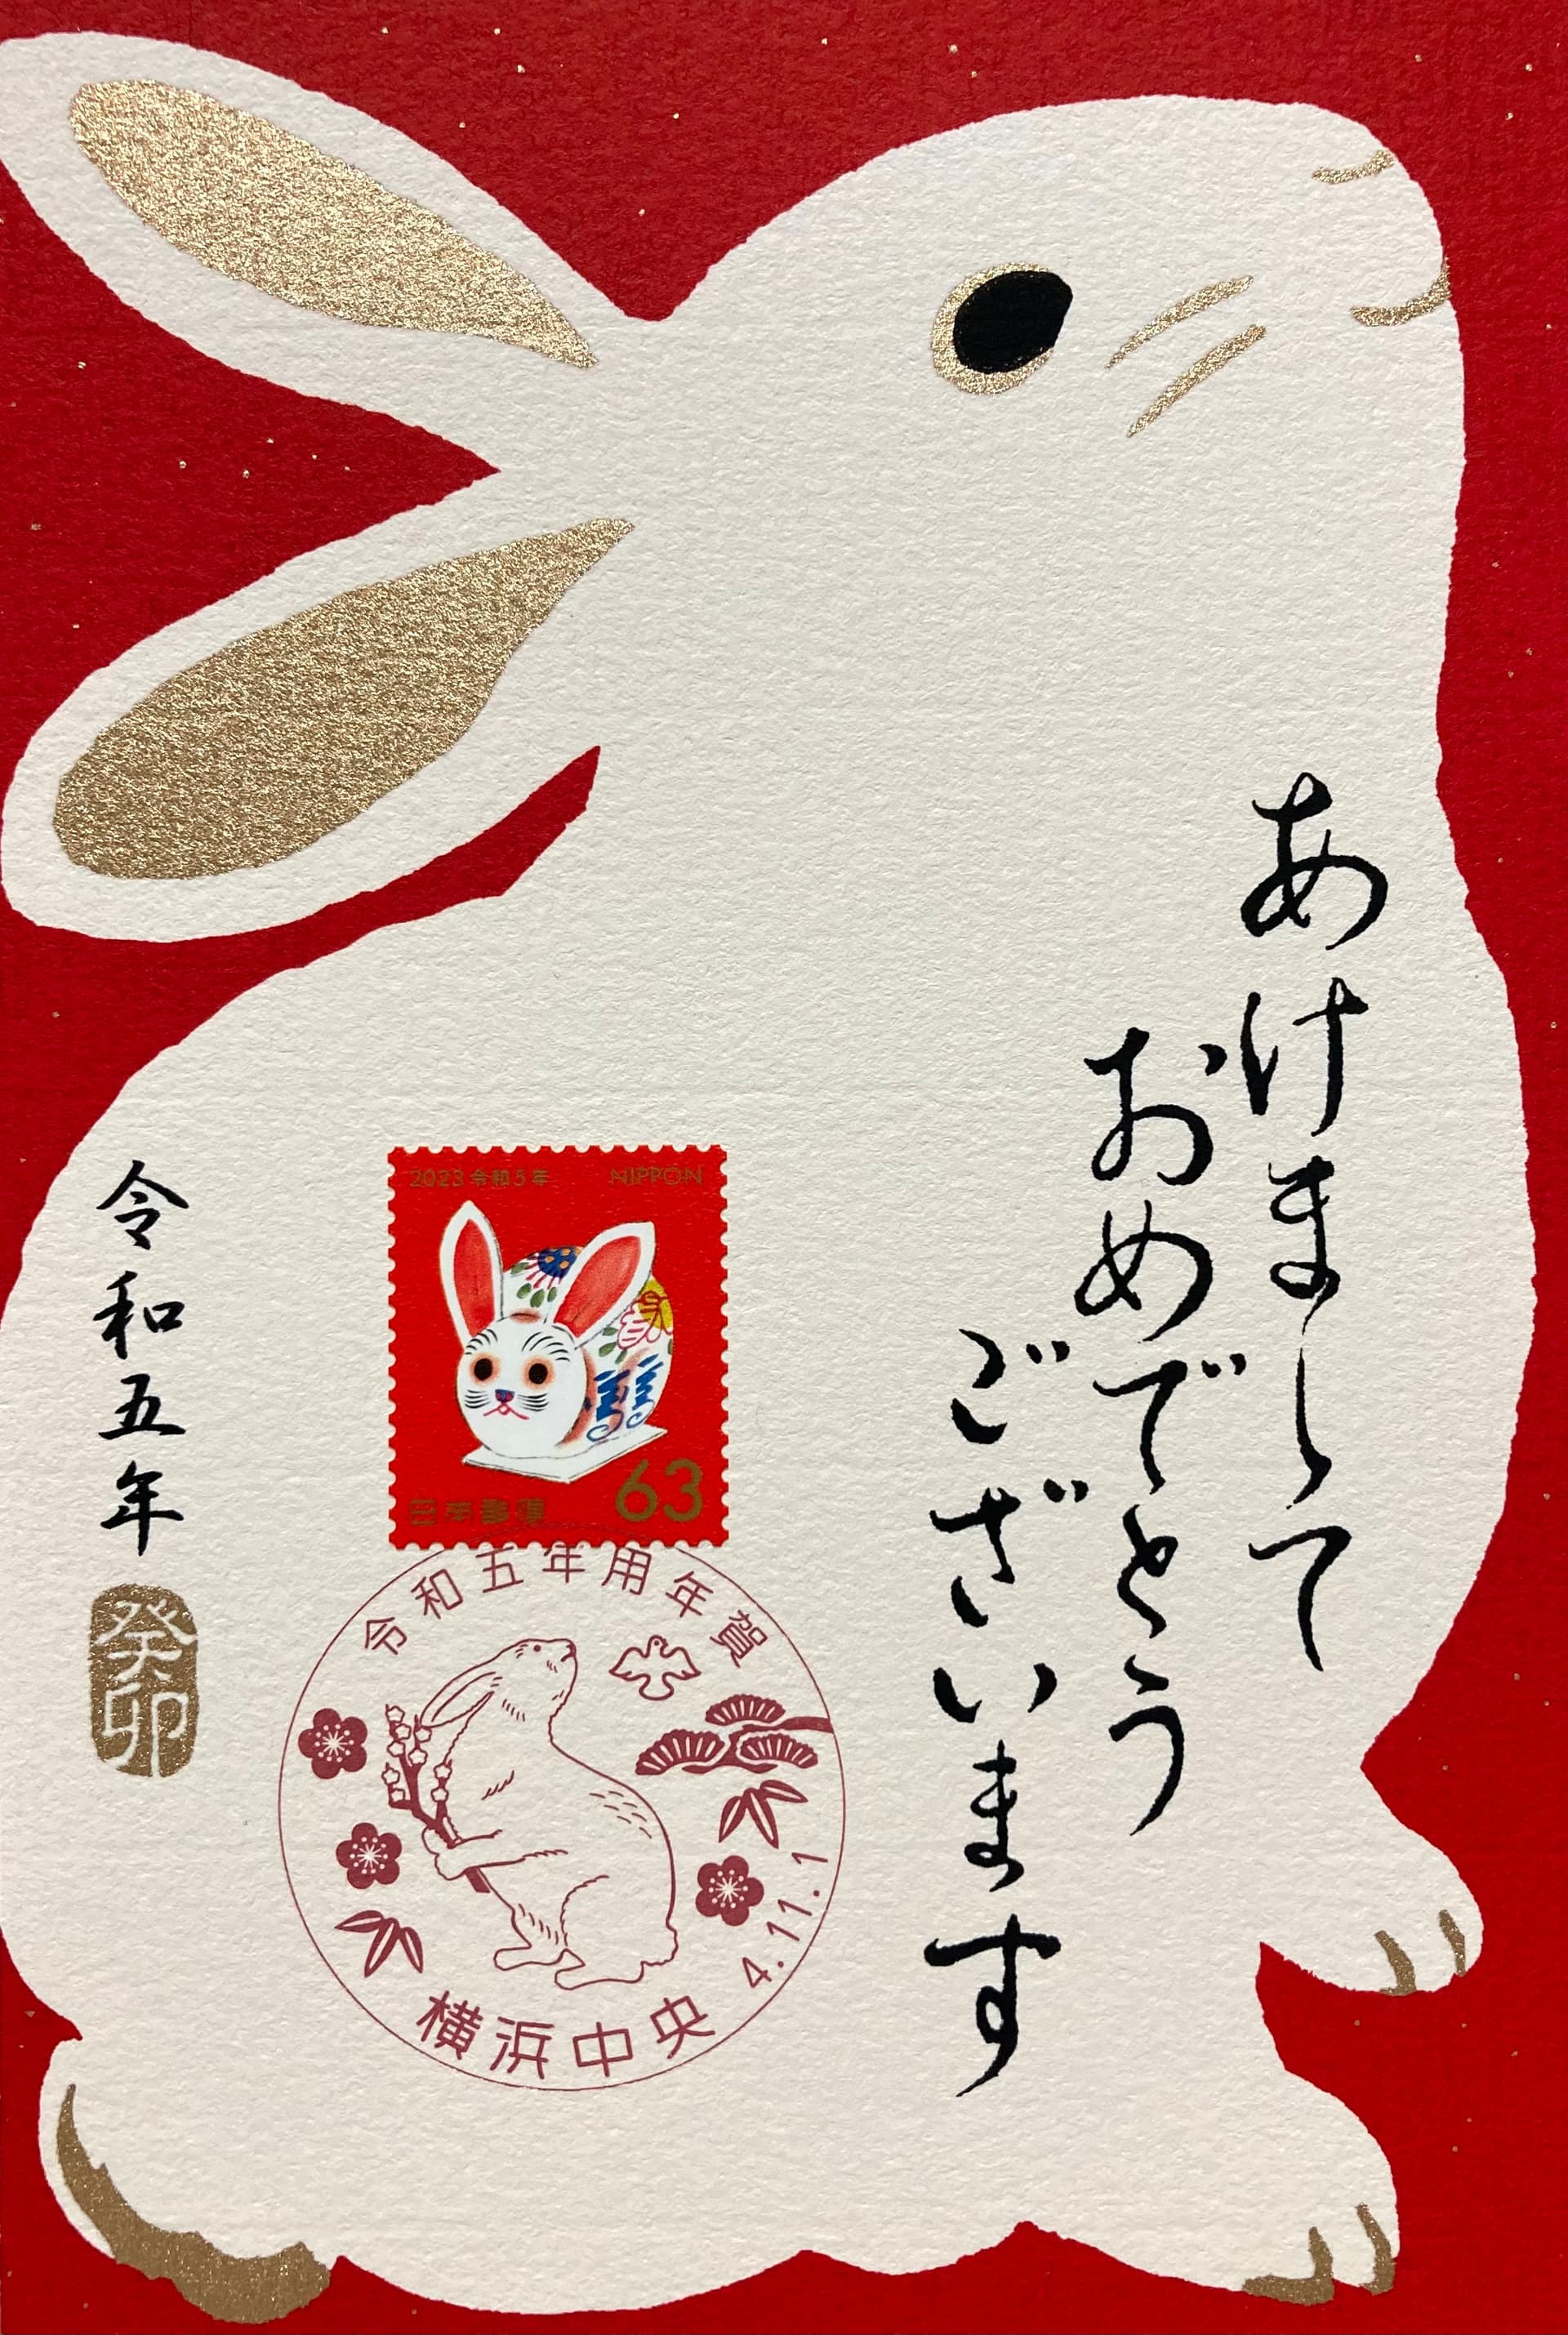 あけまして
おめでとう
ございます
2023 令和5年
NIPPON
63
日本郵便
令和五年用年賀
4.11.1
横浜中央
令和五年
癸卯